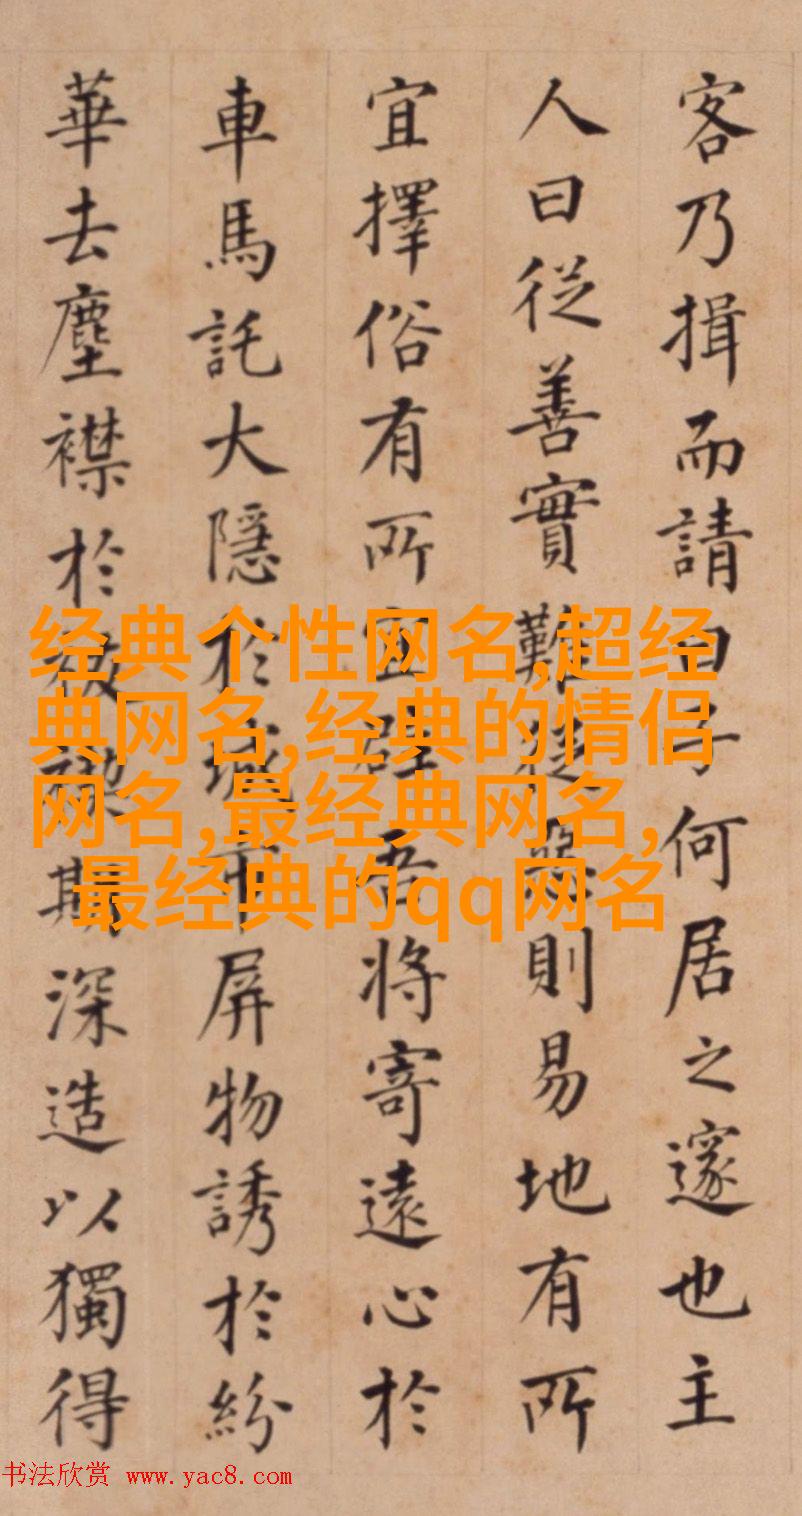 客乃揖而請曰子何居之邃也主
人曰從善實難從惡則易地有所
宜擇俗有所宜吾將寄遠心於
車馬託大隱於城市屏物誘於紛
華去塵襟於斯深造以獨得
经典个性网名,超经
典网名,经典的情侣
网名,最经典网名,
最经典的qq网名
书法欣赏 www.yac8.com